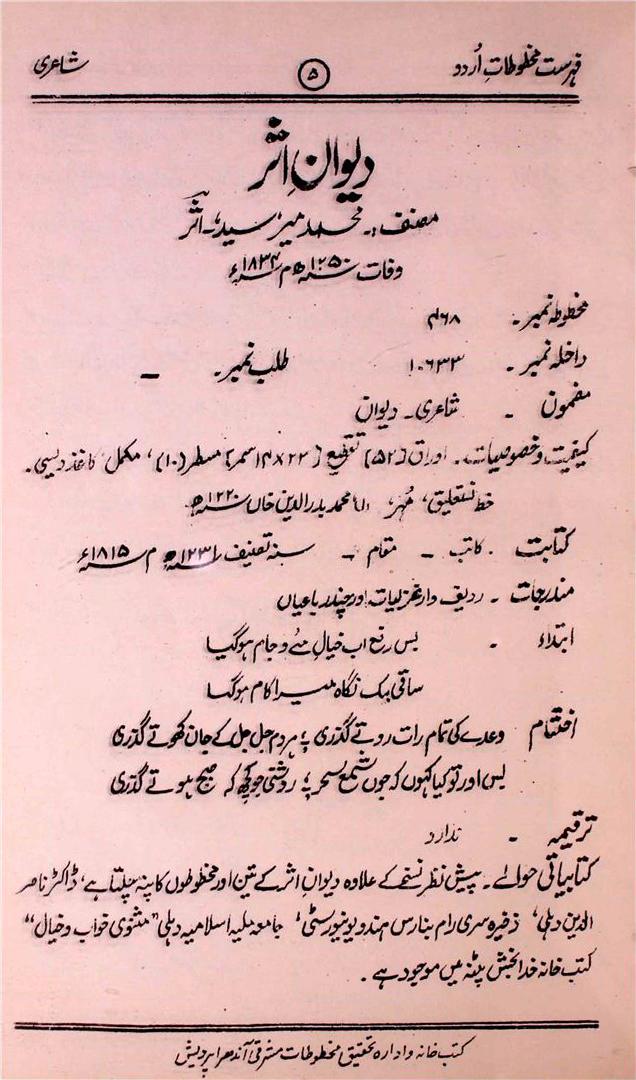 فہرست مخطوطاتِ اُردو ۵ شاعری
دیوانِ اثر
مصنف:۔ محمد میر سید، اثر
وفات ۱۲۵۰ھ م ۱۸۳۴ء
مخطوطہ نمبر۔ ۴۶۸
داخلہ نمبر۔ ۱۰۶۳۳ طلب نمبر۔ —
مضمون ۔ شاعری۔ دیوان
کیفیت و خصوصیات۔ اوراق (۵۲) تقطیع (۲۲×۱۴ سمر) مسطر (۱۰)، مکمل کاغذ دیسی۔
خط نستعلیق، مُہر، محمد بدرالدین خاں ۱۲۲۰ھ
کتابت ۔ کاتب ۔ مقام ۔ سنہ تصنیف ۱۲۳۱ھ م ۱۸۱۵ء
مندرجات ۔ ردیف وار غزلیات اور چند رباعیاں
ابتداء ۔ بس رفع اب خیالِ مے و جام ہوگیا
ساقی بیک نگاہ میرا کام ہوگیا
اختتام وعدے کی تمام رات روتے گذری ؛ ہردم جل جل کے جان کھوتے گذری
بس اور تو کیا کہوں کہ جوں شمع سحر ؛ روشنی جو کچھ کہ صبح ہوتے گذری
ترقیمہ ۔ ندارد
کتابیاتی حوالے۔ پیش نظر نسخے کے علاوہ دیوانِ اثر کے تین اور مخطوطوں کا پتہ چلتا ہے، ڈاکٹر ناصر
الدین دہلی، ذخیرہ سری رام بنارس ہندو یونیورسٹی، جامعہ ملیہ اسلامیہ دہلی "مثنوی خواب و خیال"
کتب خانہ خدا بخش پٹنہ میں موجود ہے۔
کتب خانہ و ادارہ تحقیق مخطوطات مشرقی آندھرا پردیش